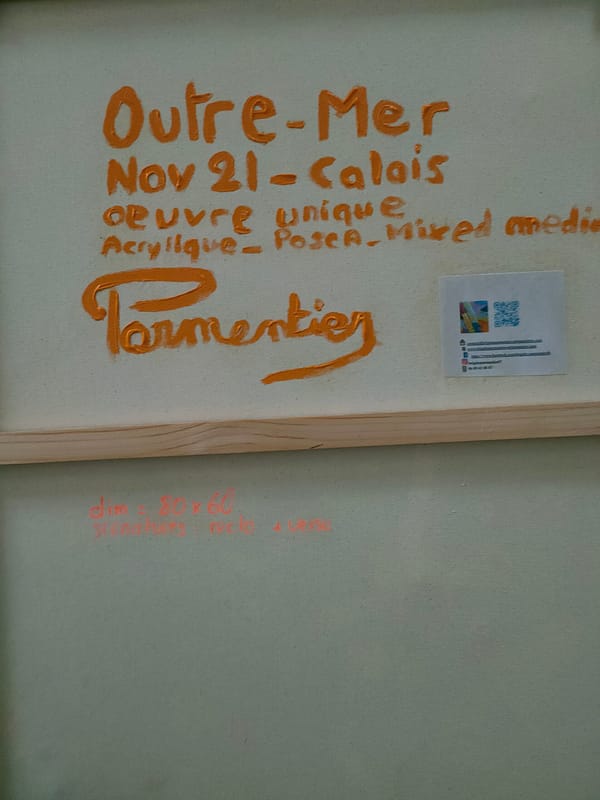 Outre-Mer
Nov 21 - Calais
oeuvre unique
Acrylique - PoscA - Mixed media
Parmentier
dim = 80 x 60
signatures : recto + verso